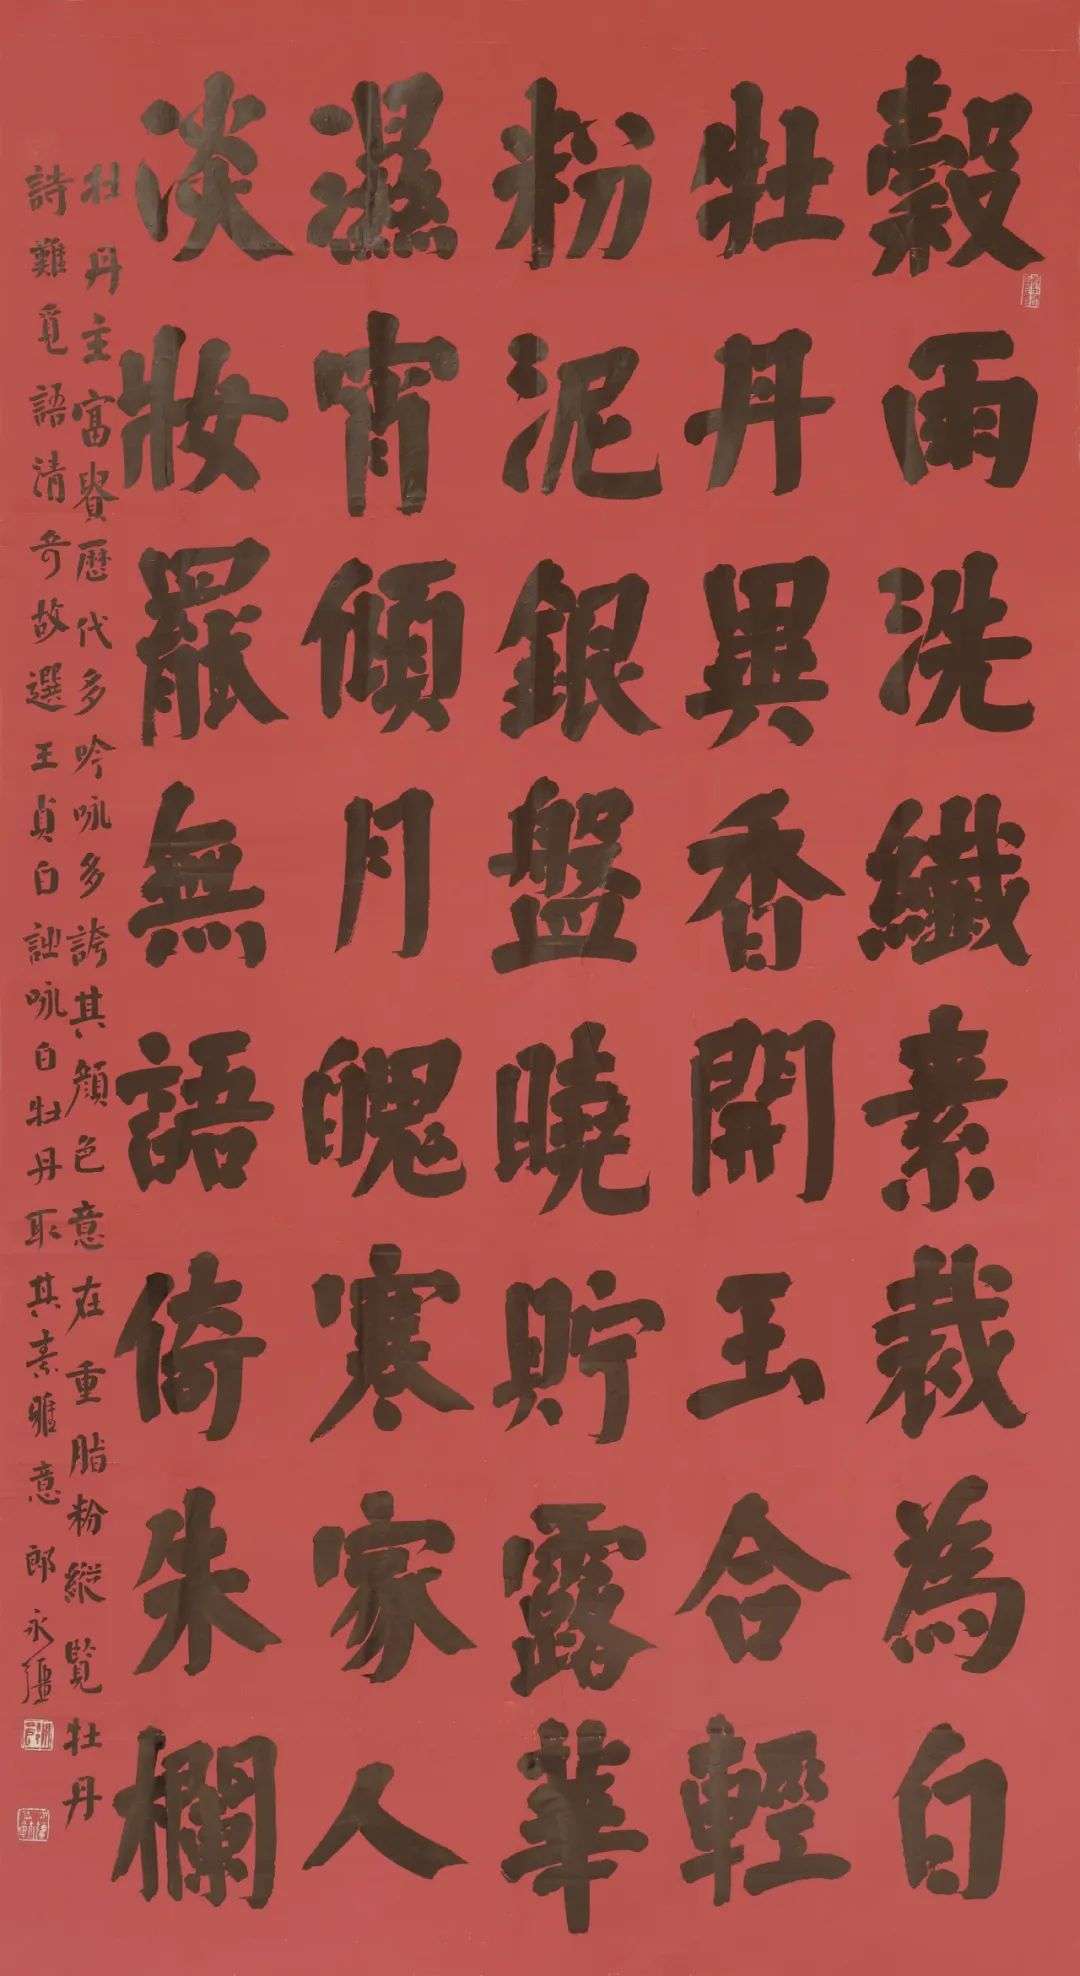 穀雨洗纖素裁為白
牡丹異香開玉合輕
粉泥銀盤曉貯露華
濕宵傾月魄寒家人
淡妝罷無語倚朱欄
牡丹主富貴歷代多吟咏多誇其顏色意在重脂粉縱覽牡丹
詩難覓語清奇故選王貞白咏白牡丹取其素雅意 郎永